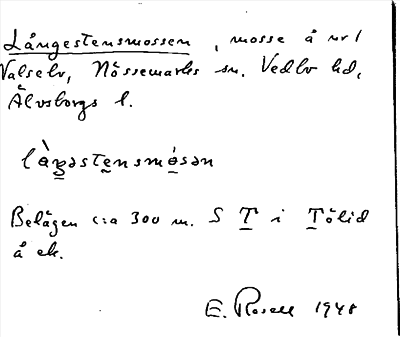 Långestensmossen, mosse å nr 1
Valselv, Nössemarks sn. Vedbo hd,
Älvsborgs l.
Belägen c:a 300 m. S T i Tölid
å ek.
E. Rosell 1948